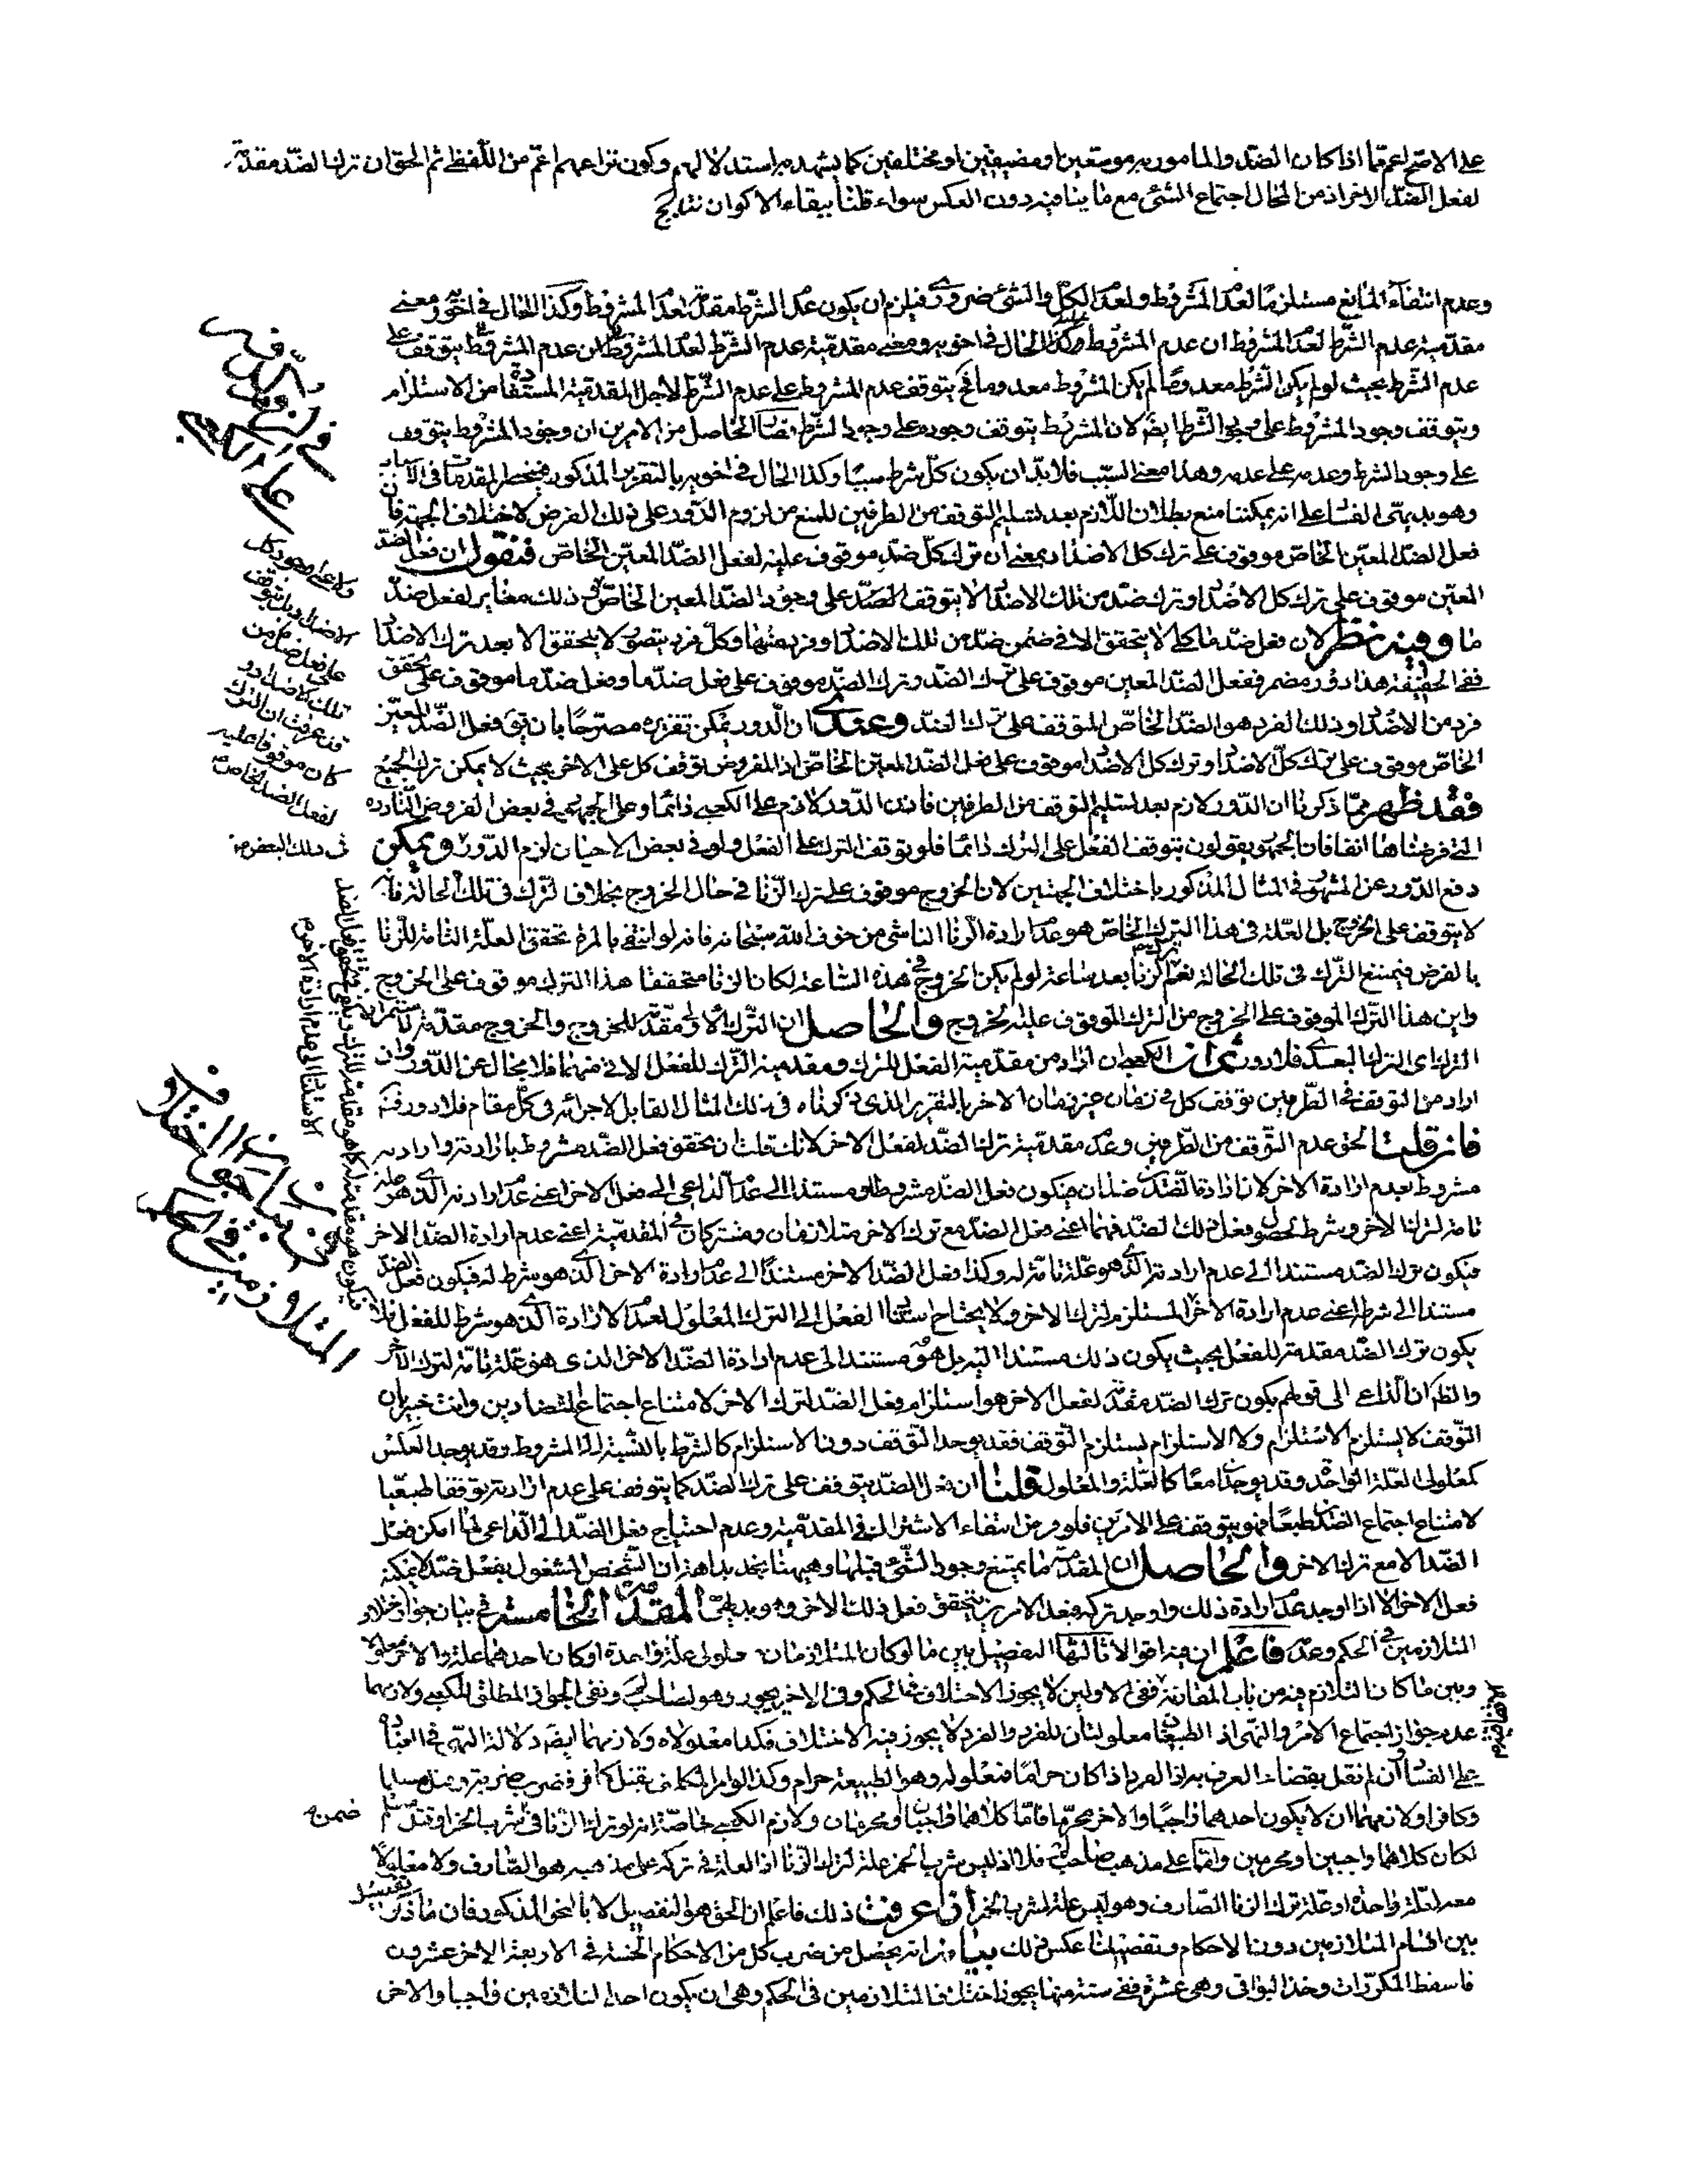 على الاصح لعم ما اذا كان الضد والمامور به موسعين او مضيقين او مختلفين كما يشهد به استدلالهم وكون نزاعهم اعم من اللفظ ثم الحق ان ترك الضد مقدمة
لفعل الضد الاخر اذ من المحال اجتماع الشئ مع ما ينافيه دون العكس سواء قلنا ببقاء الاكوان
وعدم انتفاء المانع مستلزما لعدم المشروط ولعدم الكل والشئ ضروري فيلزم ان يكون عدم الشرط مقدمة لعدم المشروط وكذا الحال في اخويه ومعنى
مقدمية عدم الشرط لعدم المشروط ان عدم المشروط يتوقف على
عدم الشرط بحيث لو لم يكن الشرط معدوما لم يكن المشروط معدوما فح يتوقف عدم المشروط على عدم الشرط لاجل المقدمية المستفادة من الاستلزام
ويتوقف وجود المشروط على وجود الشرط ايضا لان المشروط يتوقف وجوده على وجود الشرط فصار الحاصل من الامرين ان وجود المشروط يتوقف
على وجود الشرط وعدمه على عدمه وهذا معنى السبب فلا بد ان يكون كل شرط سببا وكذا الحال في اخويه بالتقرير المذكور فينحصر المقدمة في الاسباب
وهو بديهي الفساد على انه يمكننا منع بطلان اللازم بعد تسليم التوقف من الطرفين للمنع من لزوم الدور على ذلك الفرض لاختلاف الجهة فان
فعل الضد المعين الخاص موقوف على ترك كل الاضداد بمعنى ان ترك كل ضد موقوف عليه لفعل الضد المعين الخاص فنقول ان فعل الضد
المعين موقوف على ترك كل الاضداد وترك ضد من تلك الاضداد لا يتوقف على وجود الضد المعين الخاص ذلك مغاير لفعل ضد
ما وفيه نظر لان فعل ضد ما كلي لا يتحقق الا في ضمن ضد من تلك الاضداد وفرد منها وكل فرد يتصور لا يتحقق الا بعد ترك الاضداد
ففي الحقيقة هذا دور مضمر ففعل الضد المعين موقوف على ترك الضد وترك الضد موقوف على فعل ضد ما وفعل ضد ما موقوف على تحقق
فرد من الاضداد وذلك الفرد هو الضد الخاص المتوقف على ترك الضد وعندي ان الدور يمكن تقريره مصرحا بان يق فعل الضد المعين
الخاص موقوف على ترك كل الاضداد وترك كل الاضداد موقوف على فعل الضد المعين الخاص اذ المفروض توقف كل على الاخر بحيث لا يمكن ترك الجميع
فقد ظهر مما ذكرنا ان الدور لازم بعد تسليم التوقف من الطرفين فاذن الدور لازم على الكعبي دائما وعلى الجمهور في بعض الفروض النادرة
التي فرضناها اتفاقا فان الجمهور يقولون بتوقف الفعل على الترك دائما فلو توقف الترك على الفعل ولو في بعض الاحيان لزم الدور ويمكن
دفع الدور عن المشهور في المثال المذكور باختلاف الجهتين لان الخروج موقوف على ترك الزنا في حال الخروج بخلاف الترك في تلك الحالة فانه
لا يتوقف على الخروج بل العلة في هذا الترك الخاص هو عدم ارادة الزنا الناشي من خوف الله سبحانه فانه لو انتفى بالمرة تحقق العلة التامة للزنا
بالفرض فيمتنع الترك في تلك الحالة نعم ترك الزنا بعد ساعة لو لم يكن الخروج في هذه الساعة لكان الزنا متحققا هذا الترك موقوف على الخروج
واين هذا الترك الموقوف على الخروج من الترك الموقوف عليه للخروج والحاصل ان الترك الاولى مقدمة للخروج والخروج مقدمة لاستمرار
الترك اي الترك البعدي فلا دور ثم ان الكعبي ان اراد من مقدمية الفعل للترك ومقدمية الترك للفعل الاني منهما فلا مجال عن الدور وان
اراد من التوقف في الطرفين توقف كل في زمان غير زمان الاخر بالتقرير الذي ذكرناه في ذلك المثال القابل لاجرائه في كل مقام فلا دور فيه
فان قلت الحق عدم التوقف من الطرفين وعدم مقدمية ترك الضد لفعل الاخر لانك قلت ان تحقق فعل الضد مشروط بارادته وارادته
مشروط بعدم ارادة الاخر لان ارادة الضدين ضدان فيكون فعل الضد مشروطا ومستندا الى عدم الداعي الى فعل الاخر اعني عدم ارادته الذي هو علة
تامة لترك الاخر وشرط لحصول وفعل ذلك الضد فهما اعني فعل الضد مع ترك الاخر متلازمان ومشتركان في المقدمية اعني عدم ارادة الضد الاخر
فيكون ترك الضد مستندا الى عدم ارادته الذي هو علة تامة له وكذا فعل الضد الاخر مستندا الى عدم ارادة الاخر الذي هو شرط له فيكون فعل الضد
مستندا الى شرط اعني عدم ارادة الاخر المستلزم لترك الاخر ولا يحتاج استناد الفعل الى الترك المعلول لعدم الارادة الذي هو شرط للفعل فلا
يكون ترك الضد مقدمة للفعل بحيث يكون ذلك مستندا اليه بل هو مستند الى عدم ارادة الضد الاخر الذي هو علة تامة لترك الاخر
والظ ان الداعي الى قولهم بكون ترك الضد مقدمة لفعل الاخر هو استلزام فعل الضد لترك الاخر لامتناع اجتماع المتضادين وانت خبير بان
التوقف لا يستلزم الاستلزام ولا الاستلزام يستلزم التوقف فقد يوجد التوقف دون الاستلزام كالشرط بالنسبة الى المشروط وقد يوجد العكس
كمعلولي العلة الواحدة وقد يوجدا معا كالعلة والمعلول قلنا ان فعل الضد يتوقف على ترك الضد كما يتوقف على عدم ارادته توقفا طبعيا
لامتناع اجتماع الضدين طبعا فهو يتوقف على الامرين فلو فرض انتفاء الاشتراك في المقدمية وعدم احتياج فعل الضد الى الداعي لما امكن فعل
الضد الا مع ترك الاخر والحاصل ان المقدمة ما يمتنع وجود الشئ قبلها وهيهنا نجد بداهة ان الشخص المشغول بفعل ضد لا يمكنه
فعل الاخر الا اذا وجد عدم ارادة ذلك ووجد تركه فبعد الامرين يتحقق فعل ذلك الاخر وهو بديهي المقدمة الخامسة في بيان جواز اختلاف
المتلازمين في الحكم وعدمه فاعلم ان فيه اقوالا ثالثها التفصيل بين ما لو كان المتلازمان معلولي علة واحدة او كان احدهما علة والاخر معلولا
وبين ما كان التلازم فيه من باب المقارنة ففي الاولين لا يجوز الاختلاف في الحكم وفي الاخر يجوز وهو لصاحب لم ونفي الجواز المطلق للكعبي ولازمهما
عدم جواز اجتماع الامر والنهي اذ الطبيعتان معلولتان للفرد والفرد لا يجوز فيه الاختلاف فكذا معلولاه ولازمهما ايضا دلالة النهي في العبادة
على الفساد وان لم نقل بقضاء العرف به اذ الفرد اذا كان حراما فمعلوله وهو الطبيعة حرام وكذا لو امر المكلف بقتل كافر فضرب ضربة وقتل مسلما
وكافرا ولازمهما ان لا يكون احدهما واجبا والاخر محرما فاما كلاهما واجبان او محرمان ولازم الكعبي خاصة انه لو ترك الزنا في ضمن شرب الخمر او قتل مسلم
لكان كلاهما واجبين او محرمين واما على مذهب صاحب لم فلا اذ ليس شرب الخمر علة لترك الزنا اذ العلة في تركه على مذهبه هو الصارف ولا معلولا
معه لعلة واحدة اذ علة ترك الزنا الصارف وهو ليس علة لشرب الخمر اذا عرفت ذلك فاعلم ان الحق هو التفصيل لا بالنحو المذكور فان ما ذكر تفصيل
بين اقسام المتلازمين دون الاحكام وتفصيلنا عكس ذلك بيانه انه يحصل من ضرب كل من الاحكام الخمسة في الاربعة الاخر عشرون
فاسقط المكررات وخذ البواقي وهي عشرة ففي ستة منها يجوز اختلاف المتلازمين في الحكم وهي ان يكون احد المتلازمين واجبا والاخر
ولا على وجود كل
الاضداد بل يتوقف
على فعل ضد من
تلك الاضداد و
قد عرفت ان الترك
كان موقوفا عليه
لفعل الضد الخاص